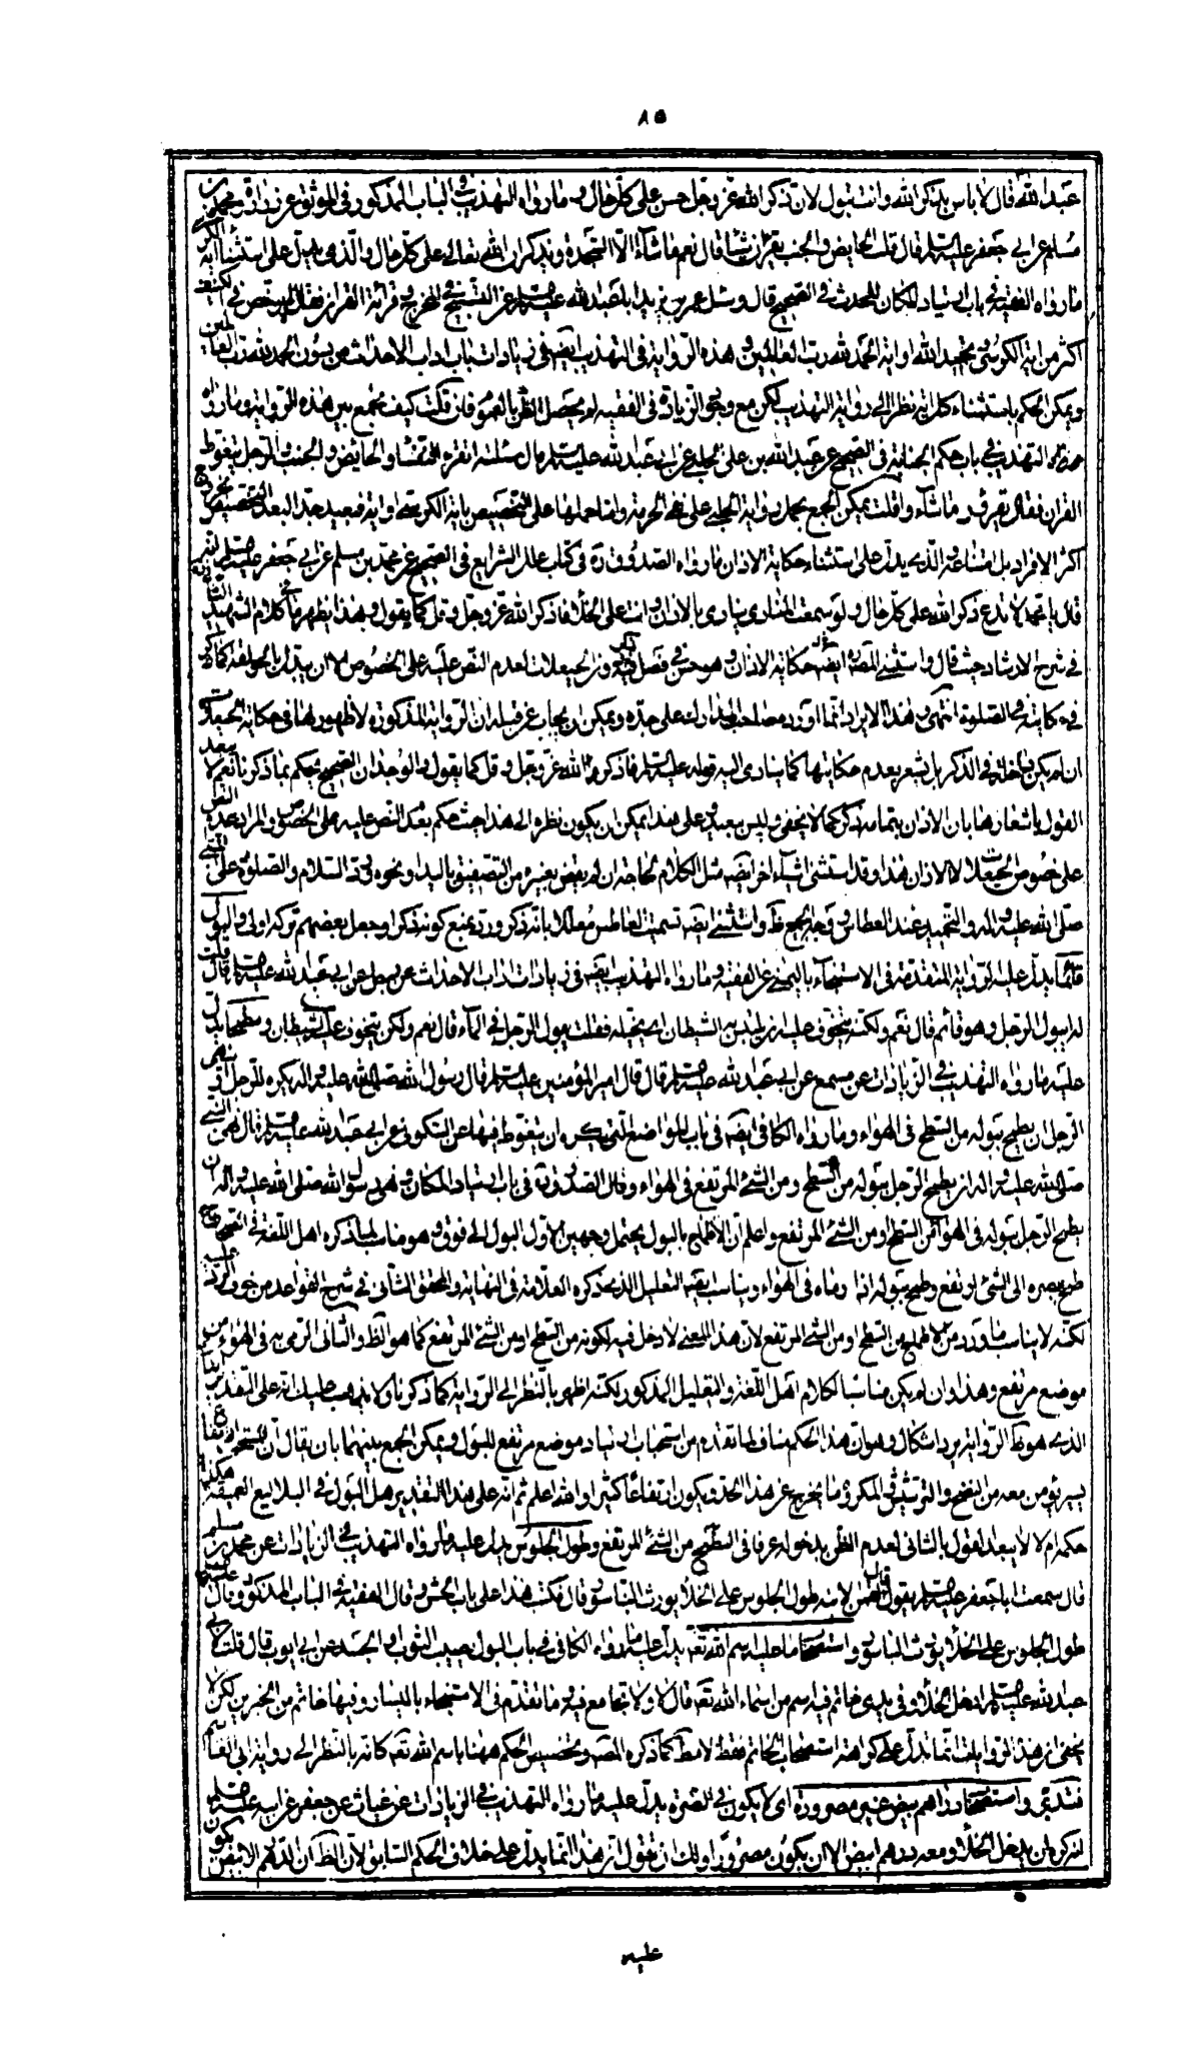 ٨٥
عبد الله قال لا باس بذكر الله وانت تبول لان ذكر الله عز وجل حسن على كل حال وما رواه التهذيب في الباب المذكور في الموثق عن زرارة ومحمد بن
مسلم عن ابي جعفر عليه السلم قال قلت الحايض والجنب يقرأن شيئا قال نعم ما شاءا الا السجدة ويذكران الله تعالى على كل حال والذي يدل على استثناء اية الكرسي
ما رواه الفقيه في باب ارتياد المكان للحدث في الصحيح قال وسئل عمر بن يزيد ابا عبد الله عليه السلم عن التسبيح في المخرج وقرائة القران فقال لم يرخص في الكنيف
اكثر من اية الكرسي ويحمد الله او اية الحمد لله رب العالمين وهذه الرواية في التهذيب ايضه في زيادات باب اداب الاحداث من بدون الحمد لله رب العالمين
ويمكن الحكم باستثناء كل اية نظرا الى رواية التهذيب لكن مع وجود الزيادة في الفقيه لم يحصل الظن بالعموم فان قلت كيف تجمع بين هذه الرواية وما رواه
التهذيب في باب حكم الجنابة في الصحيح عن عبد الله بن علي الحلبي عن ابي عبد الله عليه السلم قال سئلته اتقرء النفساء والحايض والجنب والرجل يتغوط
القران فقال يقرؤن ما شاءوا قلت يمكن الجمع بحمل رواية الحلبي على نفي الحرمة واما حملها على التخصيص باية الكرسي او اية فبعيد جدا لبعد التخصيص بخروج
اكثر الافراد بل متناعه والذي يدل على استثناء حكاية الاذان ما رواه الصدوق ره في كتاب علل الشرايع في الصحيح عن محمد بن مسلم عن ابي جعفر عليه السلم انه
قال يا محمد لا تدع ذكر الله على كل حال ولو سمعت المنادي ينادي بالاذان وانت على الخلا فاذكر الله عز وجل وقل كما يقول وبهذا يظهر ما في كلام الشهيد الثاني ره
في شرح الارشاد حيث قال واستثنى المصه ايضه حكاية الاذان وهو حسن في فصل فيه ذكر دون الحيعلات لعدم النص عليه على الخصوص الا ان يبدل بالحولقة كما ذكر
في حكايته في الصلوة انتهى وهذا الايراد انما اورده صاحب المدارك على جده ويمكن ان يجاب عن قبله ان الرواية المذكورة لا ظهور لها في حكاية الحيعلات
ان لم يكن داخلة في الذكر بل تشعر بعدم حكايتها كما ينادي اليه قوله عليه السلم فاذكر الله عز وجل وقل كما يقول والوجدان الصحيح يحكم بما ذكرنا نعم لا يبعد
القول باشعارها بان الاذان بتمامه ذكر كما لا يخفى وليس ببعيد وعلى هذا يمكن ان يكون نظره الى هذا حيث حكم بعدم النص عليه على الخصوص والمراد عدم النص
على خصوص الحيعلات لا الاذان هذا وقد استثنى اشياء اخر ايضه مثل الكلام لحاجة ان لم يفض بغيره من التصفيق باليد او نحوه ورد السلام والصلوة على النبي
صلى الله عليه واله والتحميد عند العطاس ووجه الجميع ظ واستثنى ايضه تسميت العاطس معللا بانه ذكر ورد بمنع كونه ذكرا وجعل بعضهم تركه اولى والبول
قائما يدل عليه الرواية المتقدمة في الاستنجاء باليمنى عن الفقيه وما رواه التهذيب ايضه في زيادات اداب الاحداث عن رجل عن ابي عبد الله عليه السلم قال قلت
له ايبول الرجل وهو قائم قال نعم ولكنه يتخوف عليه ان يلتبس به الشيطان اي يخبله فقلت يبول الرجل في الماء قال نعم ولكن يتخوف عليه من الشيطان ومطمحا يدل
عليه ما رواه التهذيب في الزيادات عن مسمع عن ابي عبد الله عليه السلم قال قال امير المؤمنين عليه السلم قال رسول الله صلى الله عليه واله يكره للرجل او ينهى
الرجل ان يطمح ببوله من السطح في الهواء وما رواه الكافي ايضه في باب المواضع التي يكره ان يتغوط فيها عن السكوني عن ابي عبد الله عليه السلم قال نهى النبي
صلى الله عليه واله ان يطمح الرجل ببوله من السطح ومن الشئ المرتفع في الهواء وقال الصدوق ره في باب ارتياد المكان ونهى رسول الله صلى الله عليه واله ان
يطمح الرجل ببوله في الهواء من السطح او من الشئ المرتفع واعلم ان الاطماح بالبول يحتمل وجهين الاول البول الى فوق وهو مناسب لما ذكره اهل اللغة في الصحاح
طمح بصره الى الشئ ارتفع وطمح ببوله اذا رماه في الهواء ويناسب ايضه التعليل الذي ذكره العلامة في النهاية والمحقق الثاني في شرح القواعد من خوف الرد عليه
لكنه لا يناسب ما ورد من الاطماح من السطح او من الشئ المرتفع لان هذا المعنى لا دخل فيه لكونه من السطح او من الشئ المرتفع كما هو الظ والثاني الرمي به في الهواء من
موضع مرتفع وهذا وان لم يكن مناسبا لكلام اهل اللغة والتعليل المذكور لكنه اظهر بالنظر الى الرواية كما ذكرنا ولا يذهب عليك انه على التقدير الثاني
الذي هو ظ الرواية يرد اشكال وهو ان هذا الحكم مناف لما تقدم من استحباب ارتياد موضع مرتفع للبول ويمكن الجمع بينهما بان يقال ان المستحب ارتفاع
يسير يؤمن معه من النضح والترشش والمكروه ما يخرج عن هذا الحد ويكون ارتفاعا كثيرا والله اعلم ثم انه على هذا التقدير هل البول في البلاليع العميقة حكمه هكذا
ام لا لا يبعد القول بالثاني لعدم الظن بدخوله عرفا في السطح من الشئ المرتفع وطول الجلوس يدل عليه ما رواه التهذيب في الزيادات عن محمد بن مسلم
قال سمعت ابا جعفر عليه السلم يقول قال لقمان لابنه طول الجلوس على الخلا يورث الباسور قال فكتب هذا على باب الحش وقال الفقيه في الباب المذكور وقال عليه السلم
طول الجلوس على الخلا يورث الباسور واستصحاب ما عليه اسم الله تعه يدل عليه ما رواه الكافي في باب البول يصيب الثوب او الجسد عن ابي ايوب قال قلت لابي
عبد الله عليه السلم ادخل الخلا وفي يدي خاتم فيه اسم من اسماء الله تعه قال لا ولا تجامع فيه وما تقدم في الاستنجاء باليسار وفيها خاتم من الخبرين لكن لا
يخفى ان هذه الروايات انما تدل على كراهة استصحاب الخاتم فقط لا مط كما ذكره المصه وتخصيص الحكم ههنا باسم الله تعه كانه بالنظر الى رواية ابي القاسم
فتدبر واستصحاب دراهم بيض غير مصرورة اي لا يكون في الصرة يدل عليه ما رواه التهذيب في الزيادات عن غياث عن جعفر عن ابيه عليه السلم
انه كره ان يدخل الخلا ومعه درهم ابيض الا ان يكون مصرورا ولك ان تقول ان هذا انما يدل على خلاف الحكم السابق لان الظ ان الدرهم الابيض يكون
عليه